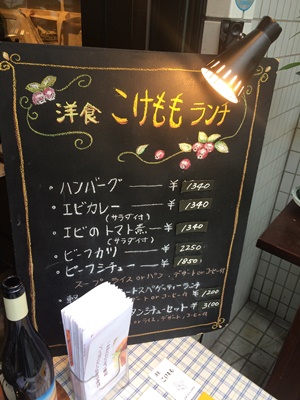 洋食 こけもも ランチ
・ハンバーグ ── ¥ 1340
・エビカレー ── ¥ 1340
(サラダイオ)
・エビのトマト煮 ─ ¥ 1340
(サラダイオ)
・ビーフカツ ── ¥ 2250
・ビーフシチュー ── ¥ 1850
スープ ライス or パン、デザート or コーヒー付
スパゲッティーランチ
デザート or コーヒー付 ¥ 1200
タンシチューセット ¥ 3100